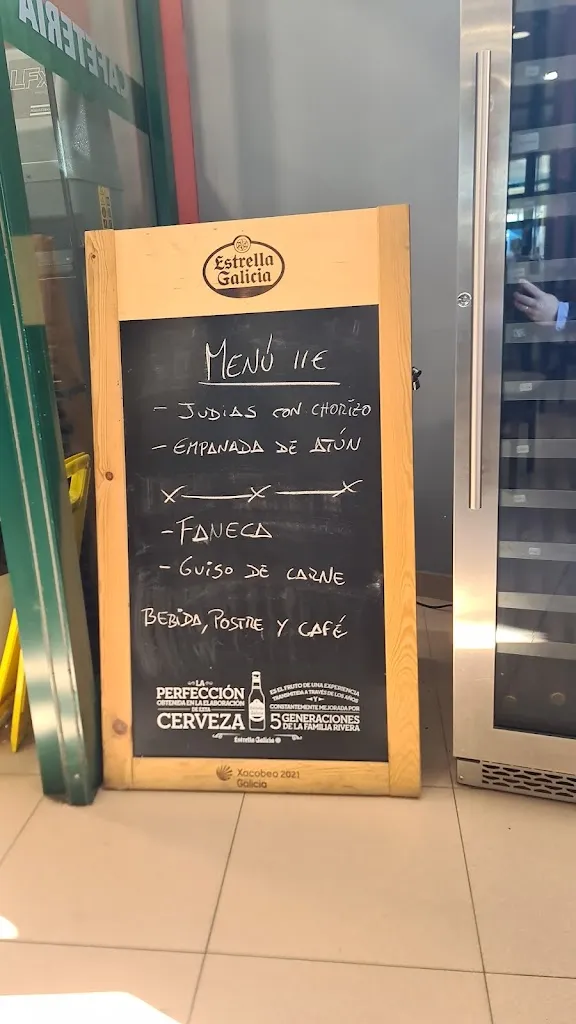 CAFETERIA
Estrella
Galicia
MENÚ 11€
- JUDIAS CON CHORIZO
- EMPANADA DE ATÚN
x — x — x
- FANECA
- GUISO DE CARNE
BEBIDA, POSTRE Y CAFÉ
LA
PERFECCIÓN
OBTENIDA EN LA ELABORACIÓN
DE ESTA
CERVEZA
ES EL FRUTO DE UNA EXPERIENCIA
TRANSMITIDA A TRAVÉS DE LOS AÑOS
Y
CONSTANTEMENTE MEJORADA POR
5 GENERACIONES
DE LA FAMILIA RIVERA
Estrella Galicia
Xacobeo 2021
Galicia